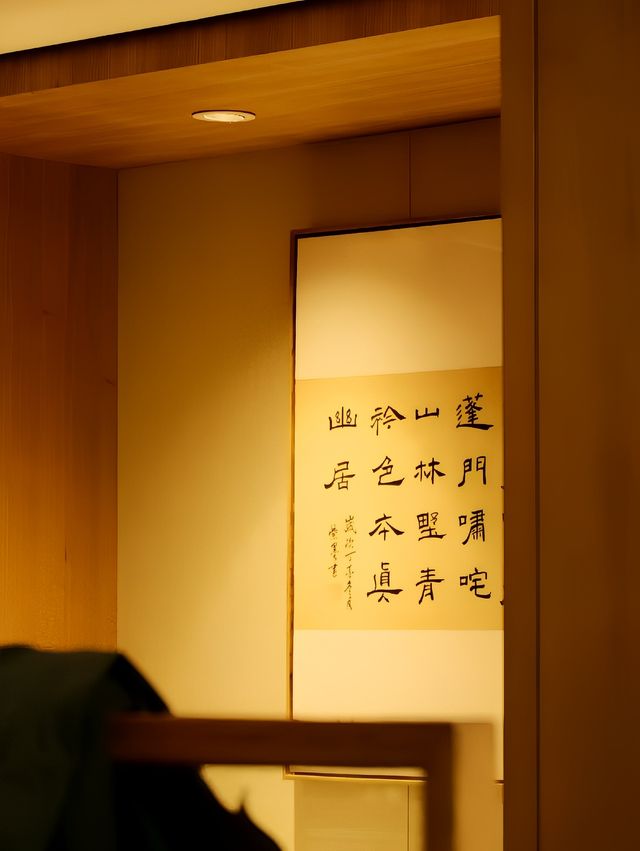 蓬門嘯咤
山林墅青
衿色本真
幽居
歲次丁亥冬月